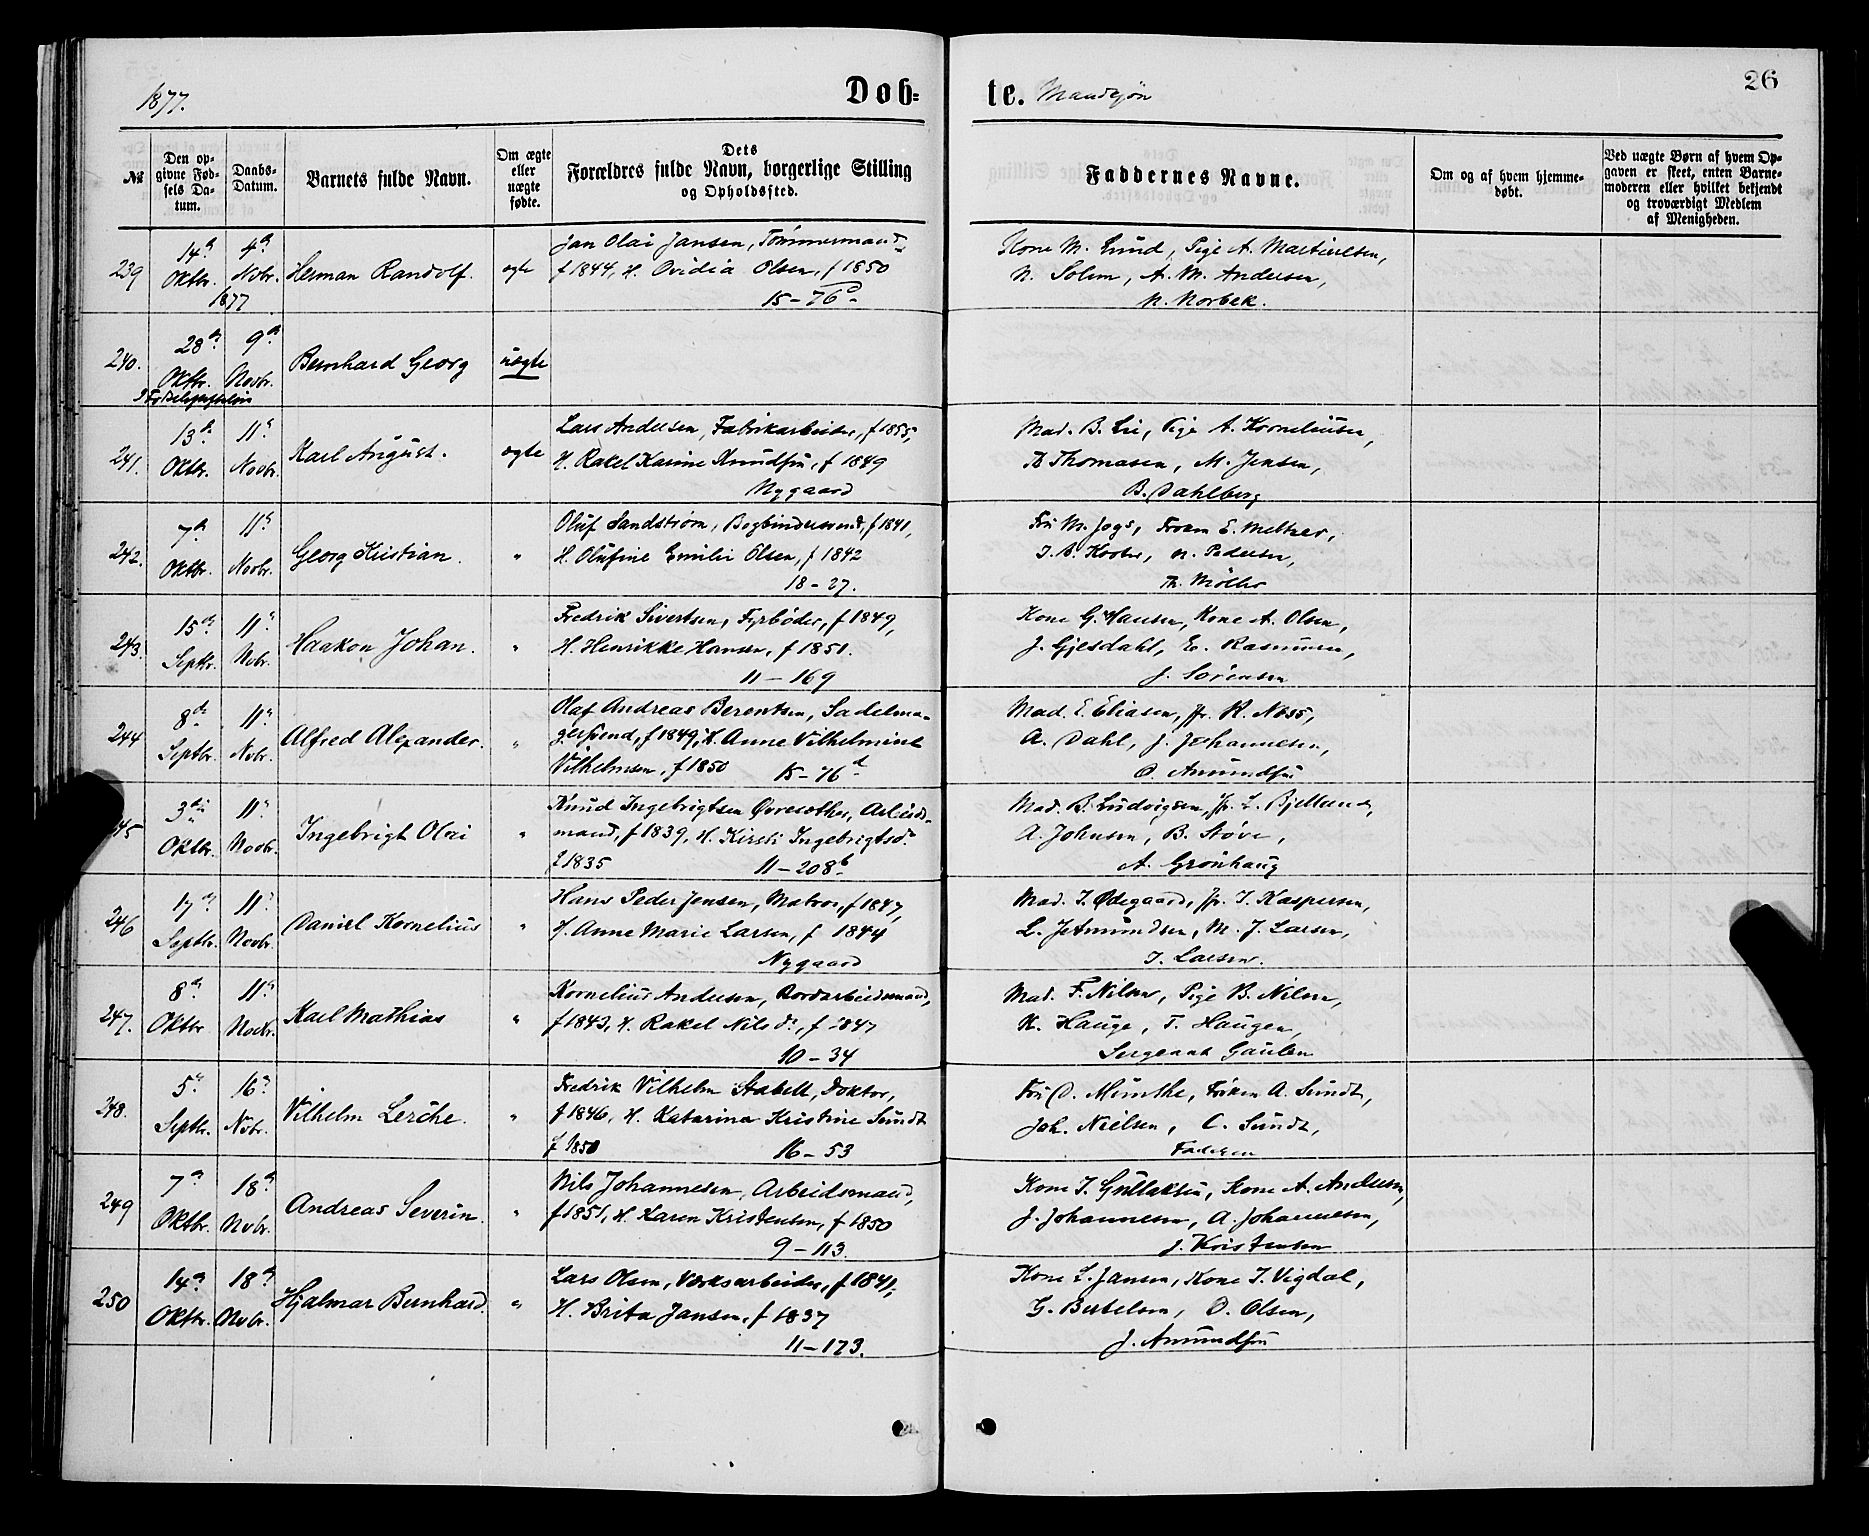 1877.
Dob-
te. Mandkjøn
26
No
Den op-
givne Fød-
sels Da-
tum.
Daabs-
Datum.
Barnets fulde Navn.
Om ægte
eller
uægte
fødte.
Dets
Forældres fulde Navn, borgerlige Stilling
og Opholdssted.
Faddernes Navne.
Om og af hvem hjemme-
døbt.
Ved uægte Børn af hvem Op-
gaven er skeet, enten Barne-
moderen eller hvilket bekjendt
og troværdigt Medlem
af Menigheden.
239 14de Oktbr. 4de Nvbr. 1877 Herman Randolf. ægte
Jan Olai Jansen, Tømmermand,
f 1844, H. Ovidia Olsen, f 1850
15-76c
Kone M. Lund, Pige A. Martinlsen,
N. Solem, A. M. Andersen,
N. Norbek.
240. 28de Oktbr. 9de Novbr. Bernhard Georg uægte
I Fødselsstiftelsen
241. 13de Oktbr. 11te Novbr. Karl August. ægte
Lars Andersen, Fabrikarbeider, f 1855,
H. Rakel Karine Knudsen, f 1849
Nygaard
Mad. B. Lie, Pige A. Korneliusen,
Thomasen, M. Jensen,
B. Dahlberg
242. 7de Oktbr. 11te Novbr. Georg Kristian. "
Oluf Sandstrøm, Bogbindersvend, f 1841,
H. Olufine Emilie Olsen, f 1842
18-27.
Fru M. Frøken E. Meltzer,
N. Pedersen,
Th. Møller
243. 15de Septbr. 11te Nvbr. Haakon Johan. "
Fredrik Sivertsen, Fyrbøder, f 1849,
H. Henrikke Hansen, f 1851.
11-169
Kone G. Hansen, Kone A. Olsen,
J. Gjesdahl, E. Rasmusen,
J. Sørensen
244 8de Septbr. 11te Nvbr. Alfred Alexander. "
Olaf Andreas Berentsen, Sadelma-
gersvend, f 1849, H. Anne Vilhelmine
Vilhelmsen, f 1850 15-76d
Mad. E. Eliasen, Jfr. K. Næss,
A. Dahl, J. Johannesen,
O. Amundsen
45 3die Oktbr. 11te Novbr. Ingebrigt Olai "
Knud Ingebrigtsen Arbeids-
mand, f 1839, H. Kirsti Ingebrigtsdr
f 1835 11-208b
Mad. B. Ludvigsen, Jfr. L. Bjelland,
A. Johnsen, B. Støve,
A. Grønhaug
246 17de Septbr. 11te Novbr. Daniel Kornelius "
Hans Peder Jensen, Matros, f 1847,
H. Anne Marie Larsen, f 1844
Nygaard
Mad. I. Ødegaard, Jfr. I. Kaspersen,
L. Jetmundsen, M. J. Larsen,
I. Larsen.
247. 8de Oktbr 11te Novbr. Karl Mathias "
Kornelius Andersen, Jordarbeidsmand,
f 1843, H. Rakel Nilsdr, f 1847
10-34
Mad. F. Nilsen, Pige B. Nilsen,
K. Hauge, T. Haugen,
Sergeant Gaulen
248. 5te Septbr. 16de Nvbr. Vilhelm Lerche. "
Fredrik Vilhelm Stabell, Doktor,
f 1846, H. Katarina Kristine Sundt
f 1850 16-53
Fru O. Munthe, Frøken A. Sundt,
Joh. Nielsen, C. Sundt,
Faderen
249 7de Oktbr. 18de Nvbr. Andreas Severin. "
Nils Johannesen, Arbeidsmand,
f 1851, H. Karen Kristensen, f 1850
9-113.
Kone I. Gullaksen, Kone A. Andersen,
J. Johannesen, A. Johannesen,
J. Kristensen
250 14de Oktbr. 18de Nvbr. Hjalmar Bernhard. "
Lars Olsen, Værksarbeider, f 1841,
H. Brita Jansen, f 1837
11-173.
Kone L. Jansen, Kone I. Vigdal,
G. Bertelsen, O. Olsen,
J. Amundsen